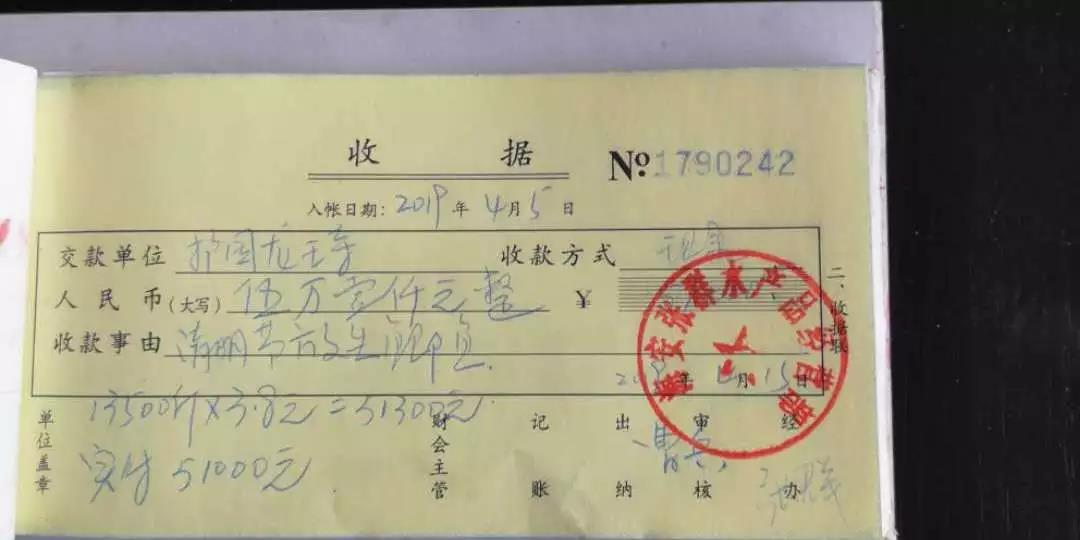 收 据 №1790242
入帐日期: 2019 年 4 月 5 日
交款单位 护国龙王寺 收款方式 现金
人民币(大写) 伍万壹仟元整 ¥
收款事由 清明节放生
年 月 15 日
13500斤×3.8元=51300元
实付 51000元
单位盖章 财会主管 记账 出纳 审核 经办
二、收据联